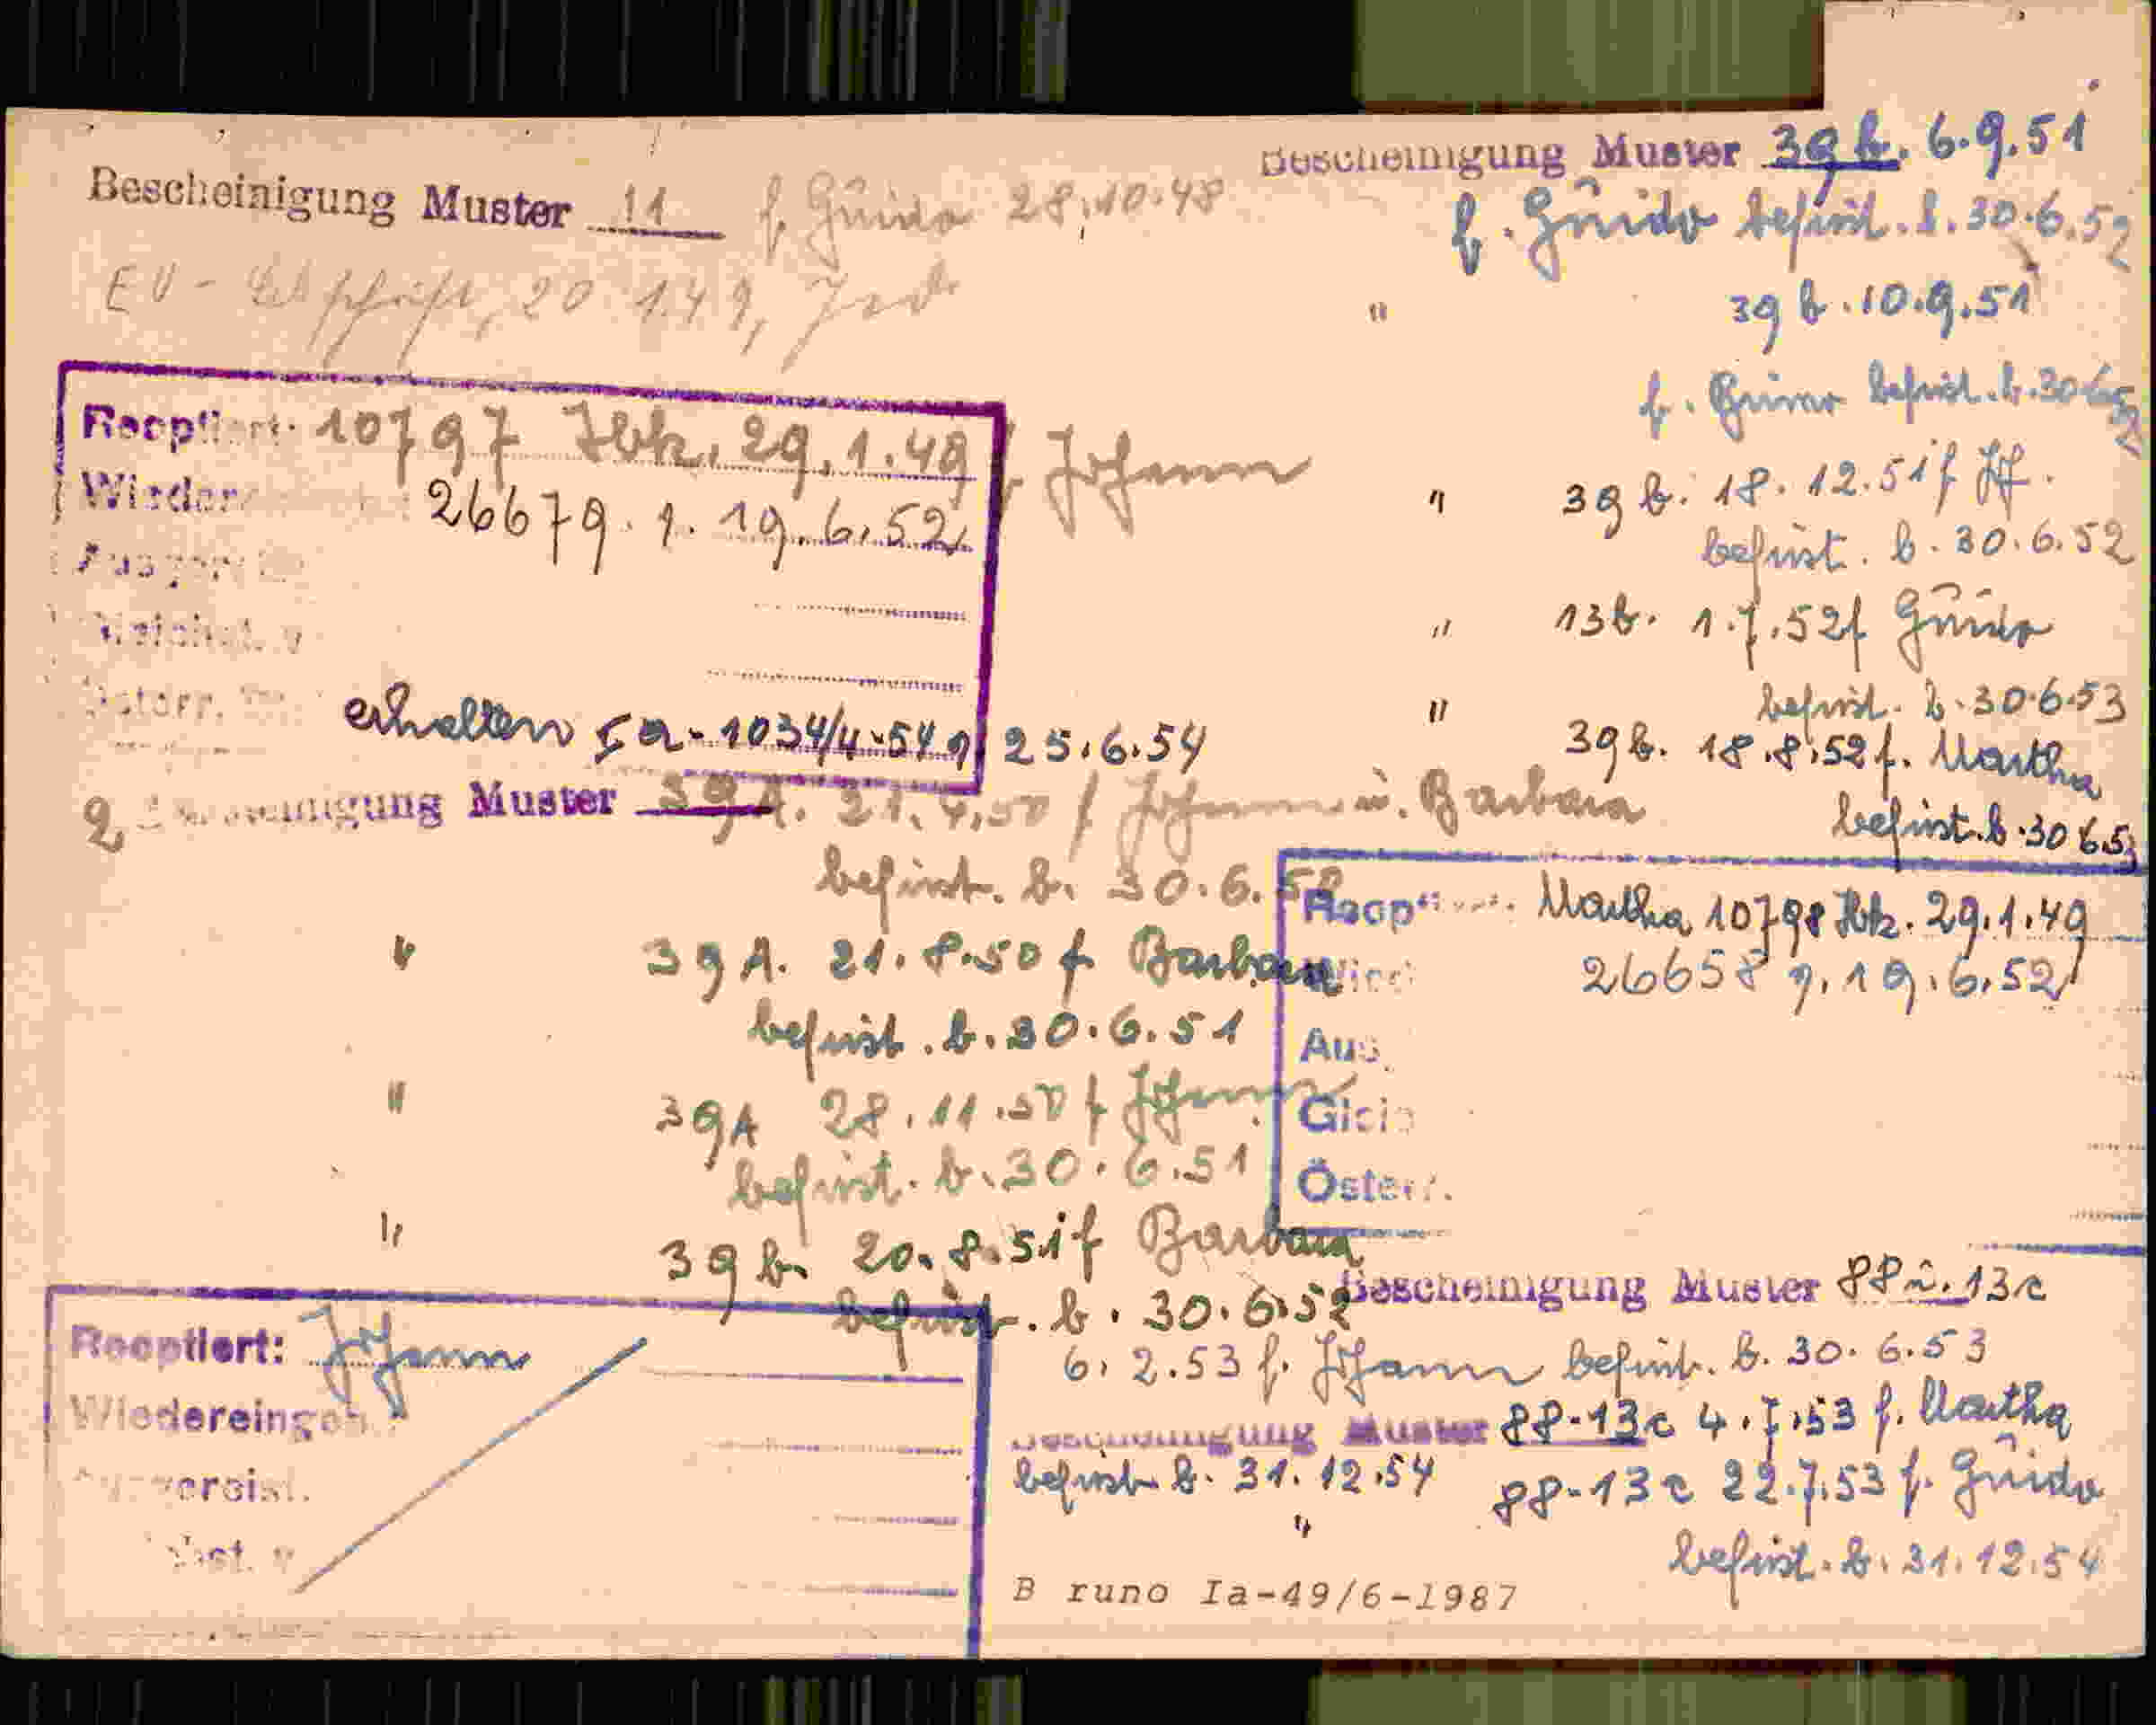 Bescheinigung Muster 11 f. Guido 28.10.48
EV - 20 1.49,
Reoptiert: 10797 Ibk. 29.1.49 f Johann
Wieder 26679. 1. 19.6.52
erhalten 1034/4-54 25.6.54
2 Bescheinigung Muster 39A. 21.4.50 f Johann u. Barbara
befrist. b. 30.6.50
" 39 A. 21.8.50 f Barbara
befrist. b. 30.6.51
" 39A 28.11.50 f Johann
befrist. b. 30.6.51
" 39 b. 20.8.51 f Barbara
befrist. b. 30.6.52
Reoptiert: Johann
Wiedereingeb.
Bescheinigung Muster 39 b. 6.9.51
f. Guido befrist. b. 30.6.52
" 39 b. 10.9.51
f. befrist. b. 30.6.52
" 39 b. 18.12.51 f
befrist. b. 30.6.52
" 13b. 1.7.52 f Guido
" befrist. b. 30.6.53
39b. 18.8.52 f. Martha
befrist. b. 30 6.53
Reoptiert: Martha 10798 Ibk. 29.1.49
Wied 26658 19.6.52
Aus
Gleic
Österr.
Bescheinigung Muster 88 u. 13c
6.2.53 f. Johann befrist. b. 30.6.53
Bescheinigung Muster 88-13c 4.7.53 f. Martha
befrist b. 31.12.54 88-13c 22.7.53 f. Guido
" befrist. b. 31.12.54
B runo Ia-49/6-1987